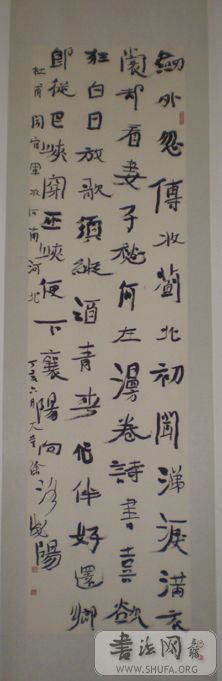 劍外忽傳收薊北初聞涕淚滿衣
裳却看妻子愁何在漫卷詩書喜欲
狂白日放歌須縱酒青春作伴好還鄉
即從巴峽穿巫峽便下襄陽向洛陽
杜甫聞官軍收河南河北
丁亥六月
書法网
WWW.SHUFA.ORG